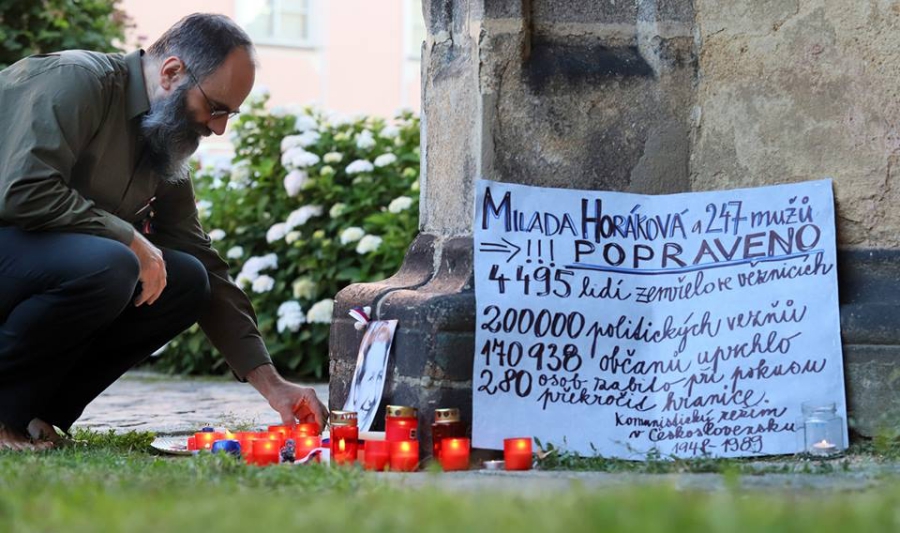 MILADA HORÁKOVÁ a 247 mužů
⇒ !!! POPRAVENO
4495 lidí zemřelo ve věznicích
200000 politických vězňů
170 938 občanů uprchlo
280 osob zabito při pokusu
překročit hranice.
Komunistický režim
v Československu
1948 - 1989